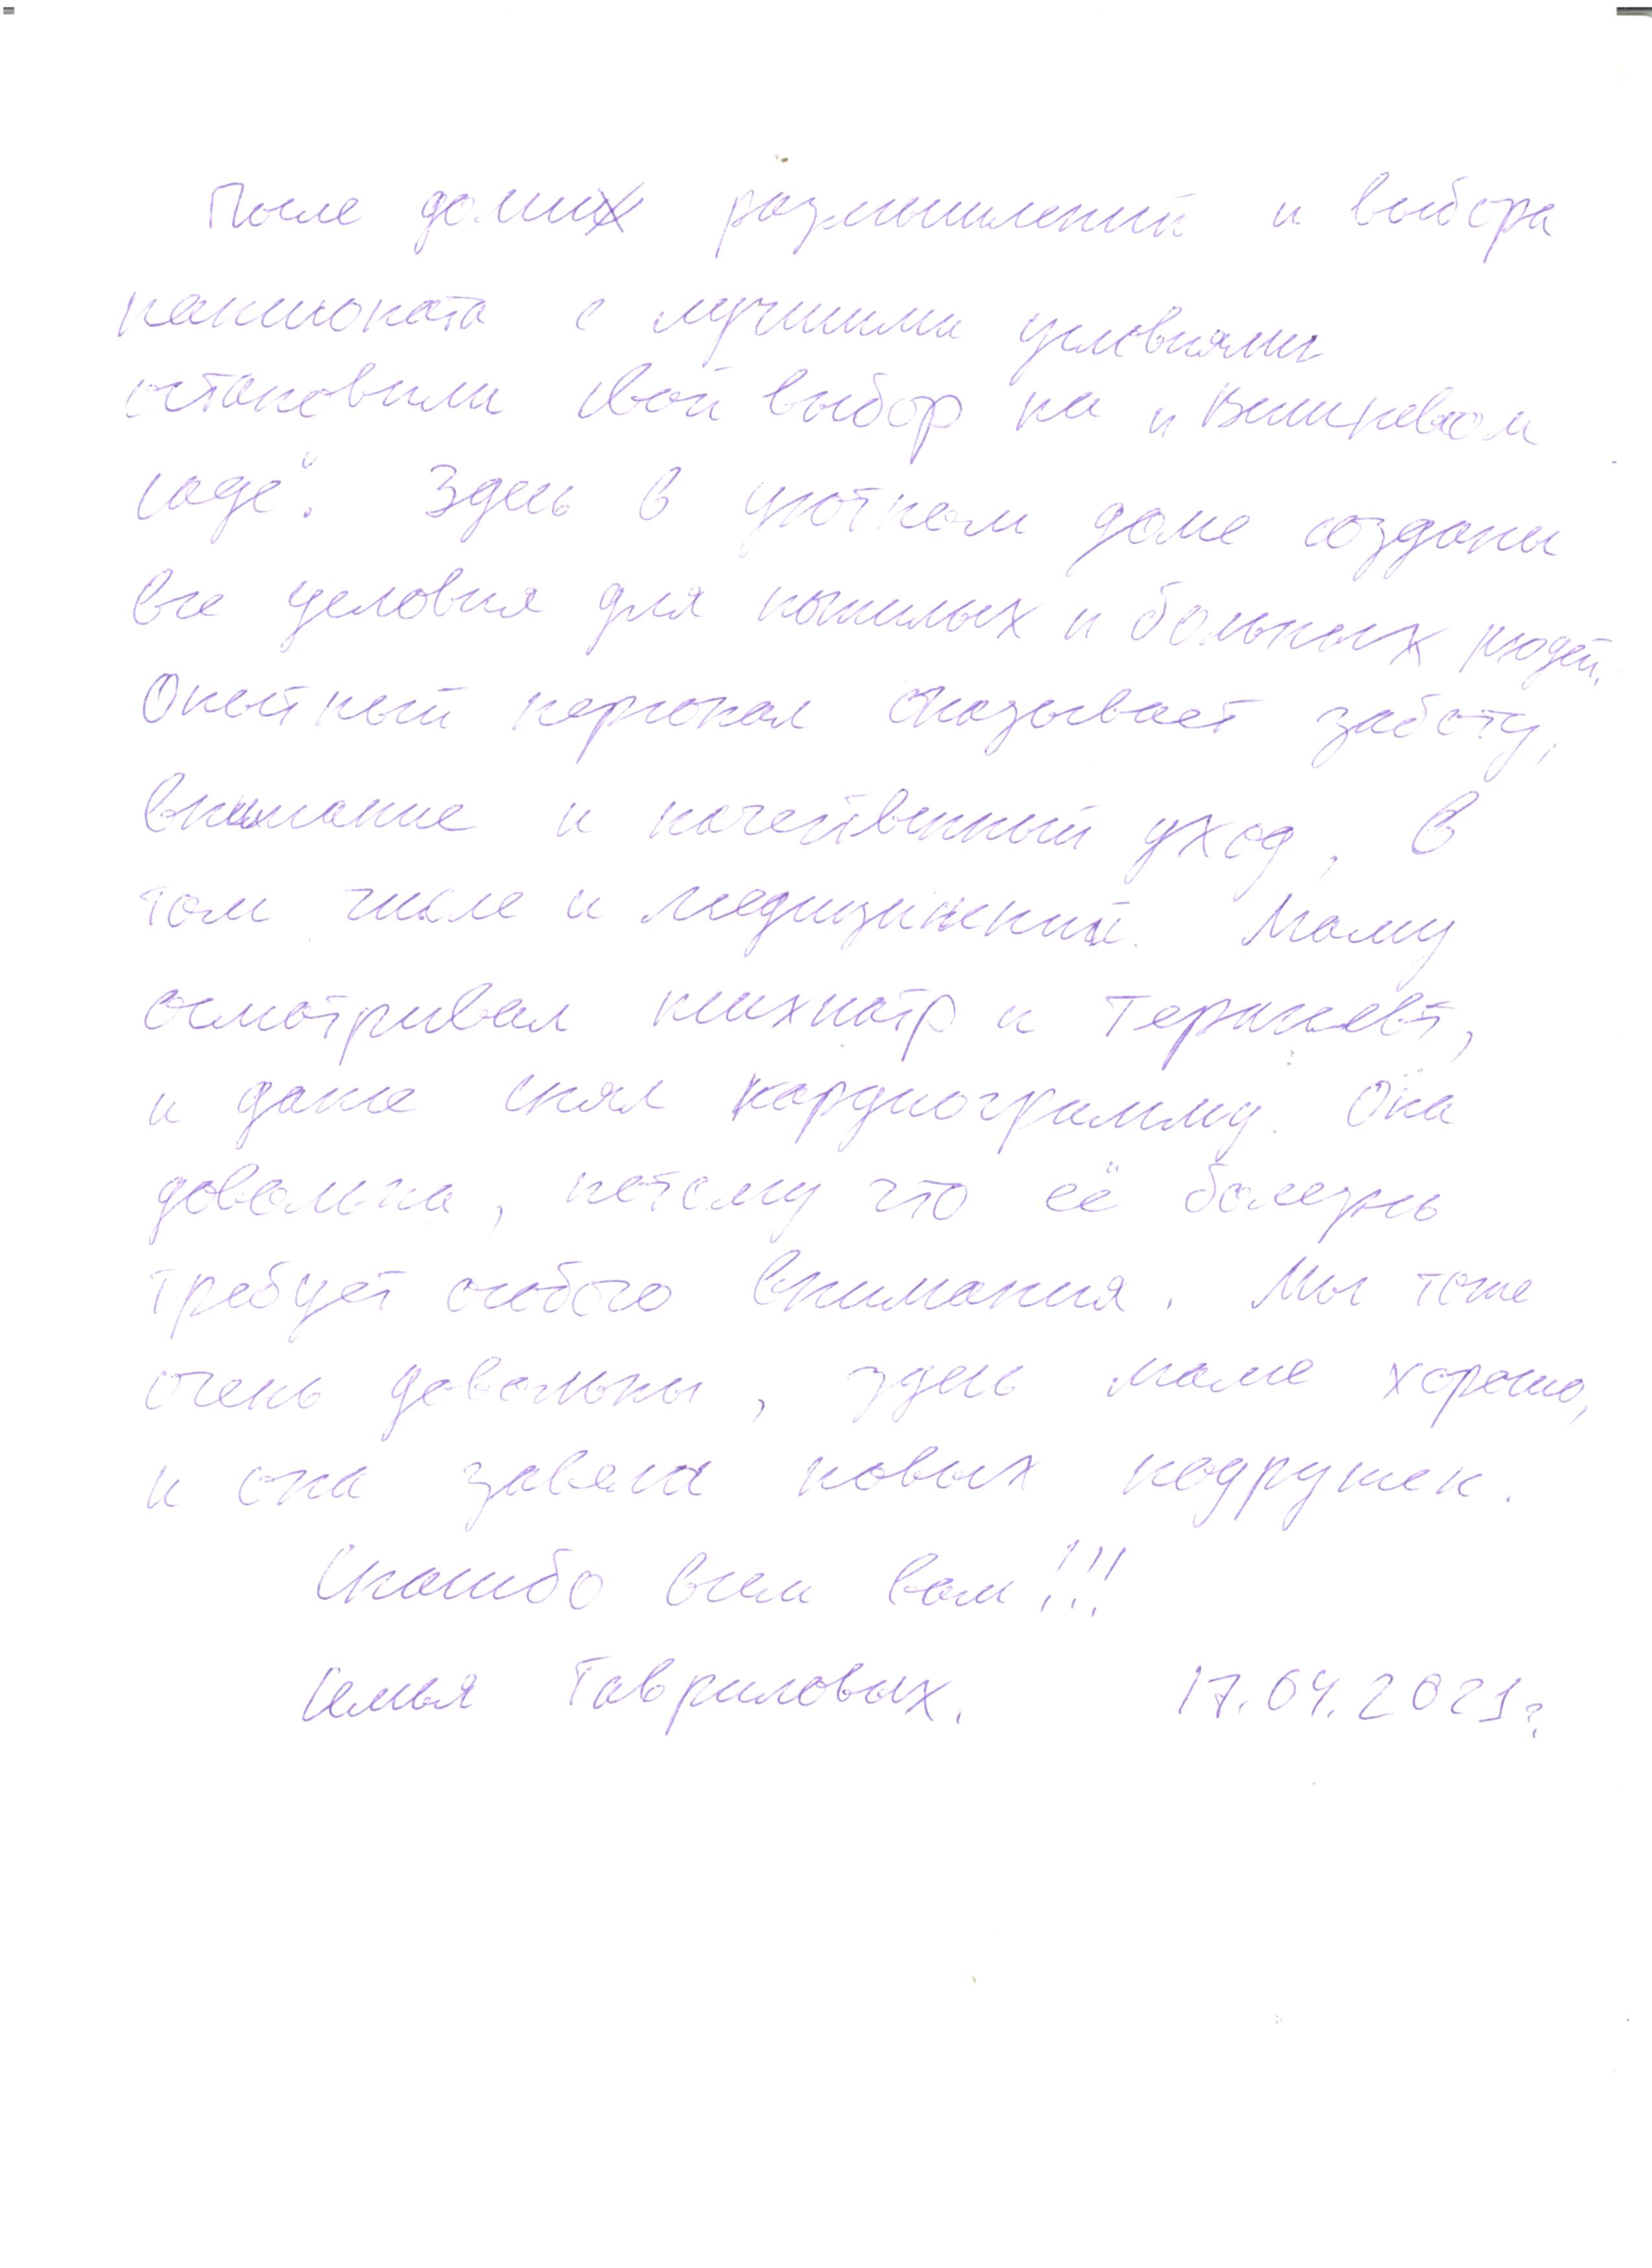 После долгих размышлений и выбора
пансионата с лучшими условиями
остановили свой выбор на „Вишневом
саде“. Здесь в уютном доме созданы
все условия для пожилых и больных людей.
Опытный персонал оказывает заботу,
внимание и качественный уход, в
том числе и медицинский. Маму
осматривал психиатр и терапевт,
и даже снял кардиограмму. Она
довольна, потому что её болезнь
требует особого внимания. Мы тоже
очень довольны, здесь маме хорошо,
и она завела новых подружек.
Спасибо всем вам!!!
Семья Гавриловых. 17.04.2021г.